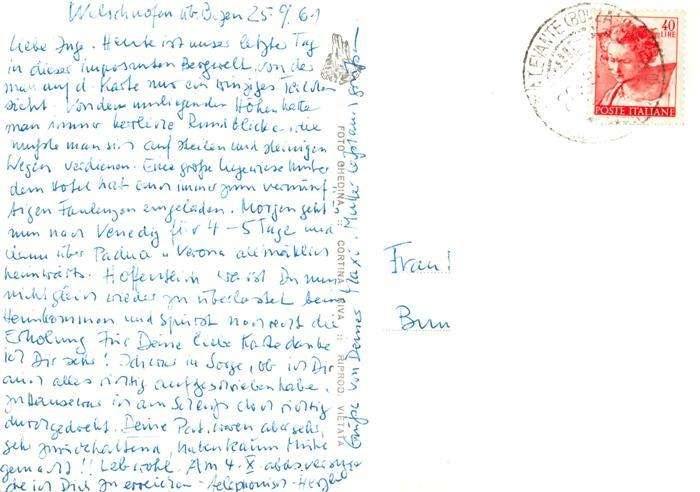 Welschnofen üb. Bozen 25. 9. 61
Liebe Inge. Heute ist unser letzter Tag
in dieser imposanten Bergwelt, von der
man auf d. Karte nur ein winziges Teilchen
sieht. Von den umliegenden Höhen hatte
man immer herrliche Rundblicke, die
mußte man sich auf steilen und steinigen
Wegen verdienen. Eine große Liegewiese hinter
dem Hotel hat einen immer zum vernünf-
tigen Faulenzen eingeladen. Morgen geht's
nun nach Venedig für 4-5 Tage und
dann über Padua u. Verona allmählich
heimwärts. Hoffentlich bist Du nun
nicht gleich wieder zu überlastet beim
Heimkommen und spürst noch recht die
Erholung. Für Deine liebe Karte danke
ich Dir sehr! Ich war in Sorge, ob ich Dir
auch alles richtig aufgeschrieben habe.
zuhause war ich am doch richtig
durchgedreht. Deine waren aber sehr,
sehr zurückhaltend, haben kaum Mühe
gemacht!! Lebwohl. Am 4. X.
bin ich Dir zu erreichen - telephonisch - Herzl.
Grüße von Deiner Maxi. Mutter läßt grüßen
FOTO GHEDINA :: CORTINA RIVA :: RIPROD. VIETATA
LEVANTE (BOLZANO)
40
LIRE
POSTE ITALIANE
Frau!